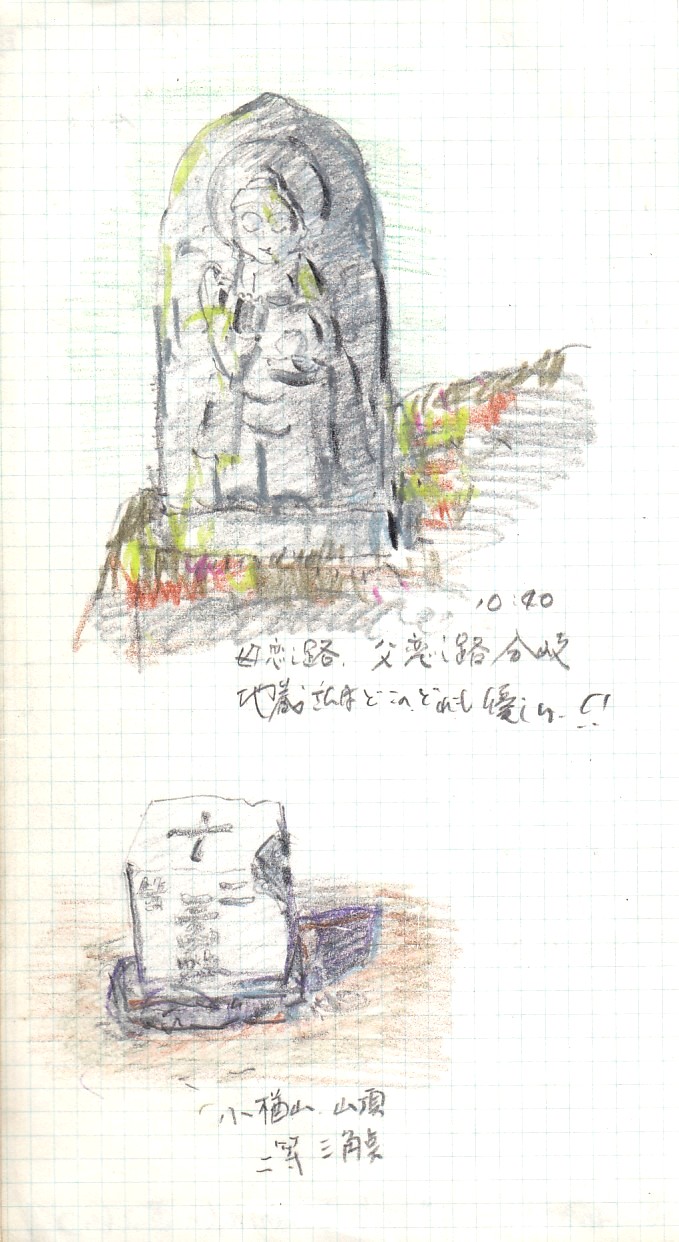 10:40
母恋し路、父恋し路分岐
地蔵さんはどこのどれも優しい!!
小楢山 山頂
二等 三角点